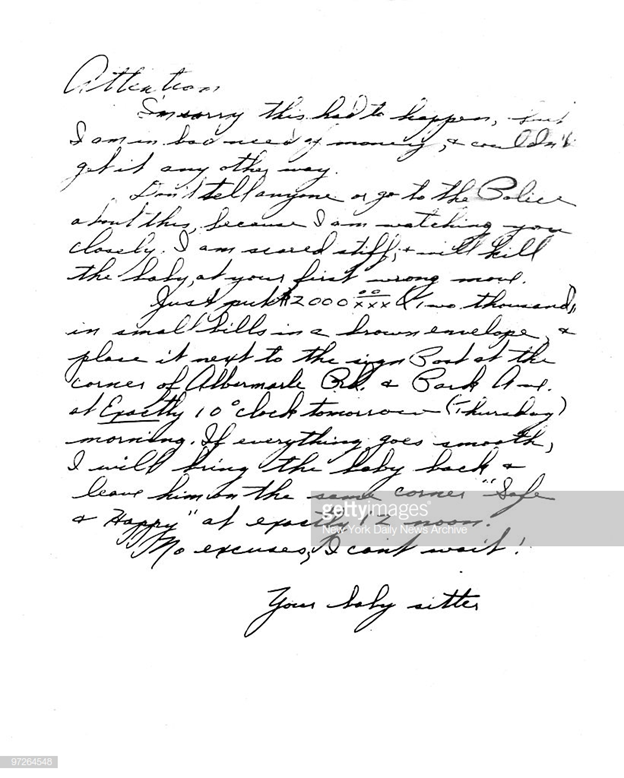 Attention
I'm sorry this had to happen, but
I am in bad need of money, & couldn't
get it any other way.
Don't tell anyone or go to the Police
about this, because I am watching you
closely. I am scared stiff, & will kill
the baby, at your first wrong move.
Just put $2000 00/xxx (Two thousand)
in small bills in a brown envelope, &
place it next to the sign Post at the
corner of Albermarle Rd. & Park Ave.
at Exactly 10 o'clock tomorrow (Thursday)
morning. If everything goes smooth,
I will bring the baby back &
leave him on the same corner "Safe
& Happy" at exactly 12 noon.
No excuses, I can't wait!
Your baby sitter
gettyimages
New York Daily News Archive
97264548